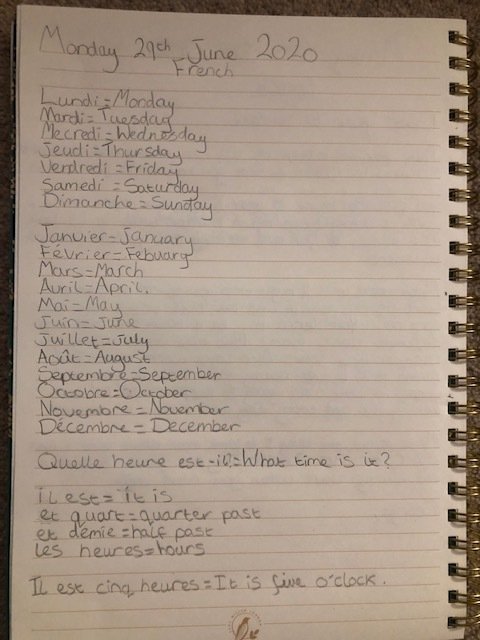 Monday 29th June 2020
French
Lundi=Monday
Mardi=Tuesday
Mecredi=Wednesday
Jeudi=Thursday
Verdredi=Friday
Samedi=Saturday
Dimanche=Sunday
Janvier=January
Février=Febuary
Mars=March
Avril=April.
Mai=May
Juin=June
Juillet=July
Août=August
Septembre=September
Octobre=October
Novembre=November
Décembre=December
Quelle heure est-il?=What time is it?
il est=it is
et quart=quarter past
et demie=half past
Les heures=hours
Il est cinq heures=It is five o'clock.